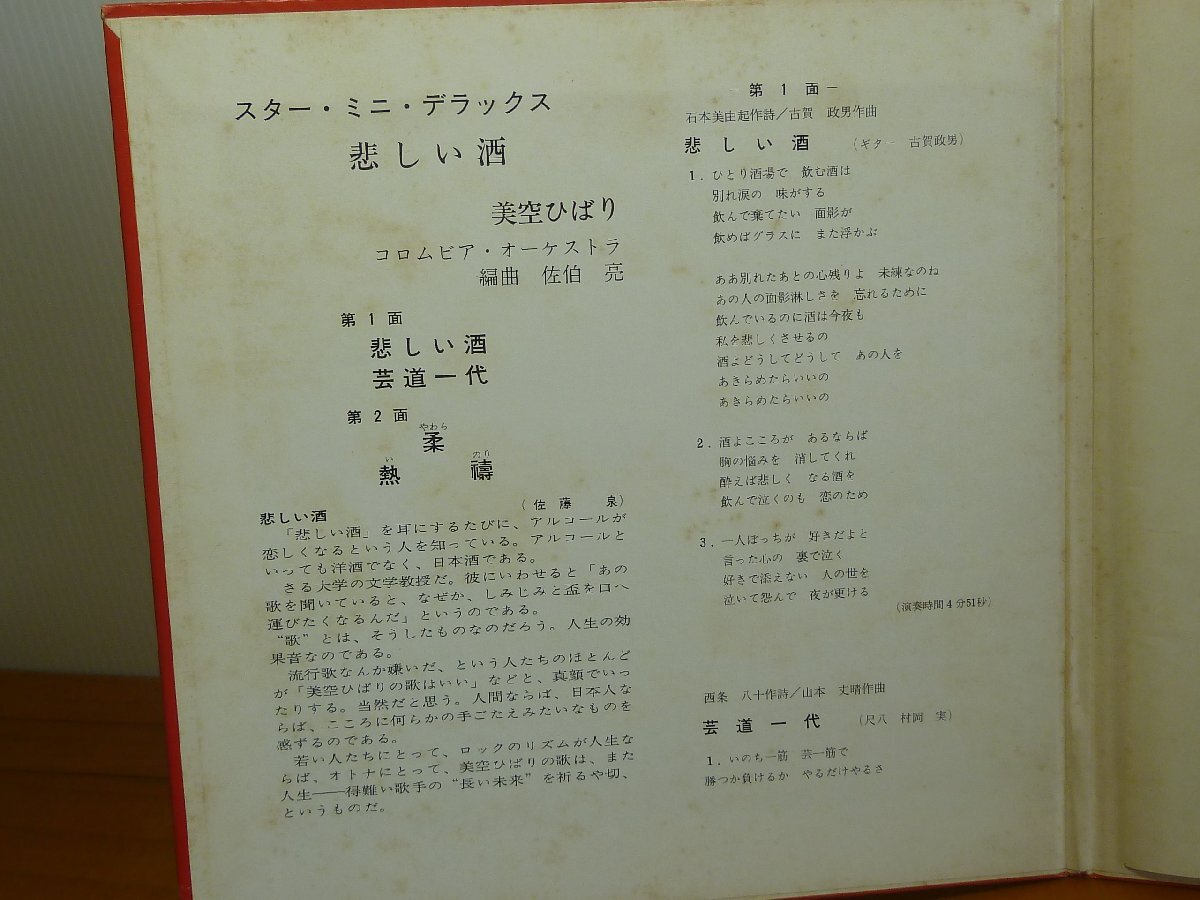 スター・ミニ・デラックス
悲しい酒
美空ひばり
コロムビア・オーケストラ
編曲 佐伯 亮
第1面
悲しい酒
芸道一代
第2面
やわら
柔
い のり
熱 禱
(佐藤 泉)
悲しい酒
「悲しい酒」を耳にするたびに、アルコールが
恋しくなるという人を知っている。アルコールと
いっても洋酒でなく、日本酒である。
さる大学の文学教授だ。彼にいわせると「あの
歌を聞いていると、なぜか、しみじみと盃を口へ
運びたくなるんだ」というのである。
“歌”とは、そうしたものなのだろう。人生の効
果音なのである。
流行歌なんか嫌いだ、という人たちのほとんど
が「美空ひばりの歌はいい」などと、真顔でいっ
たりする。当然だと思う。人間ならば、日本人な
らば、こころに何らかの手ごたえみたいなものを
感ずるのである。
若い人たちにとって、ロックのリズムが人生な
らば、オトナにとって、美空ひばりの歌は、また
人生――得難い歌手の“長い未来”を祈るや切、
というものだ。
第1面―
石本美由起作詩/古賀 政男作曲
悲しい酒 (ギター 古賀政男)
1. ひとり酒場で 飲む酒は
別れ涙の 味がする
飲んで棄てたい 面影が
飲めばグラスに また浮かぶ
ああ別れたあとの心残りよ 未練なのね
あの人の面影淋しさを 忘れるために
飲んでいるのに酒は今夜も
私を悲しくさせるの
酒よどうしてどうして あの人を
あきらめたらいいの
あきらめたらいいの
2. 酒よこころが あるならば
胸の悩みを 消してくれ
酔えば悲しく なる酒を
飲んで泣くのも 恋のため
3. 一人ぼっちが 好きだよと
言った心の 裏で泣く
好きで添えない 人の世を
泣いて怨んで 夜が更ける
(演奏時間4分51秒)
西条 八十作詩/山本 丈晴作曲
芸道一代 (尺八 村岡 実)
1. いのち一筋 芸一筋で
勝つか負けるか やるだけやるさ